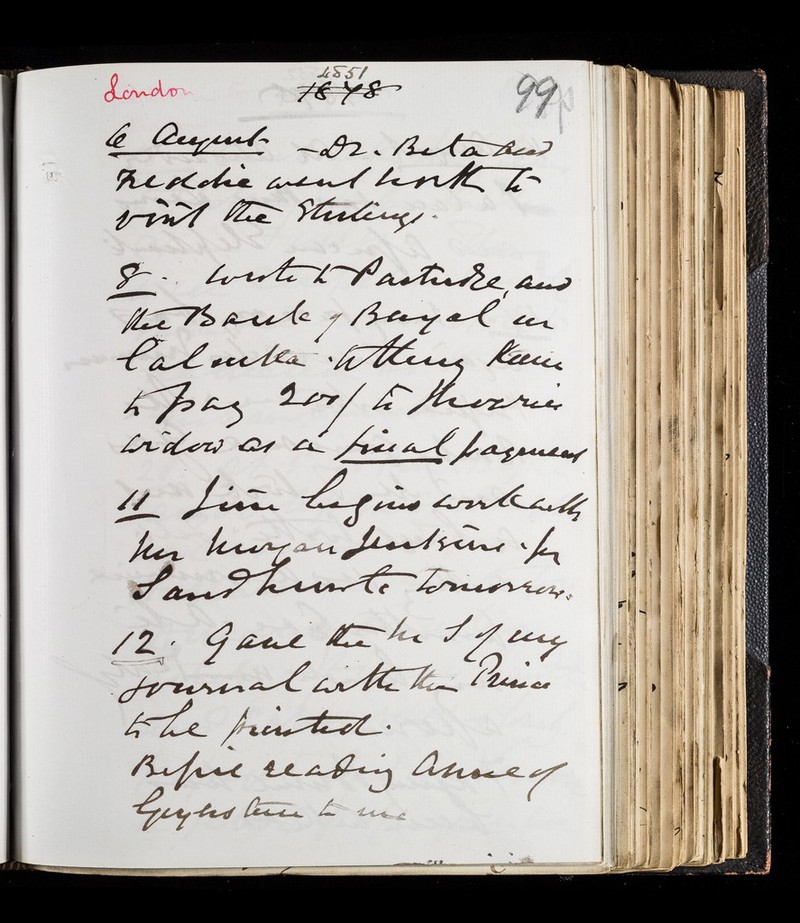 London
1878
99
6 August - Dr. Beta and
Freddie went north to
visit the Stirlings.
8. wrote to Partridge and
the Bank of Bengal in
Calcutta telling them
to pay 200/ to
widow as a final payment
11 Jim begins work with
Mr Morgan Jenkins for
Sandhurst tomorrow.
12. Gave the M S of my
journal with the Prince
to be printed.
reading Anne of
Geyerstein to me